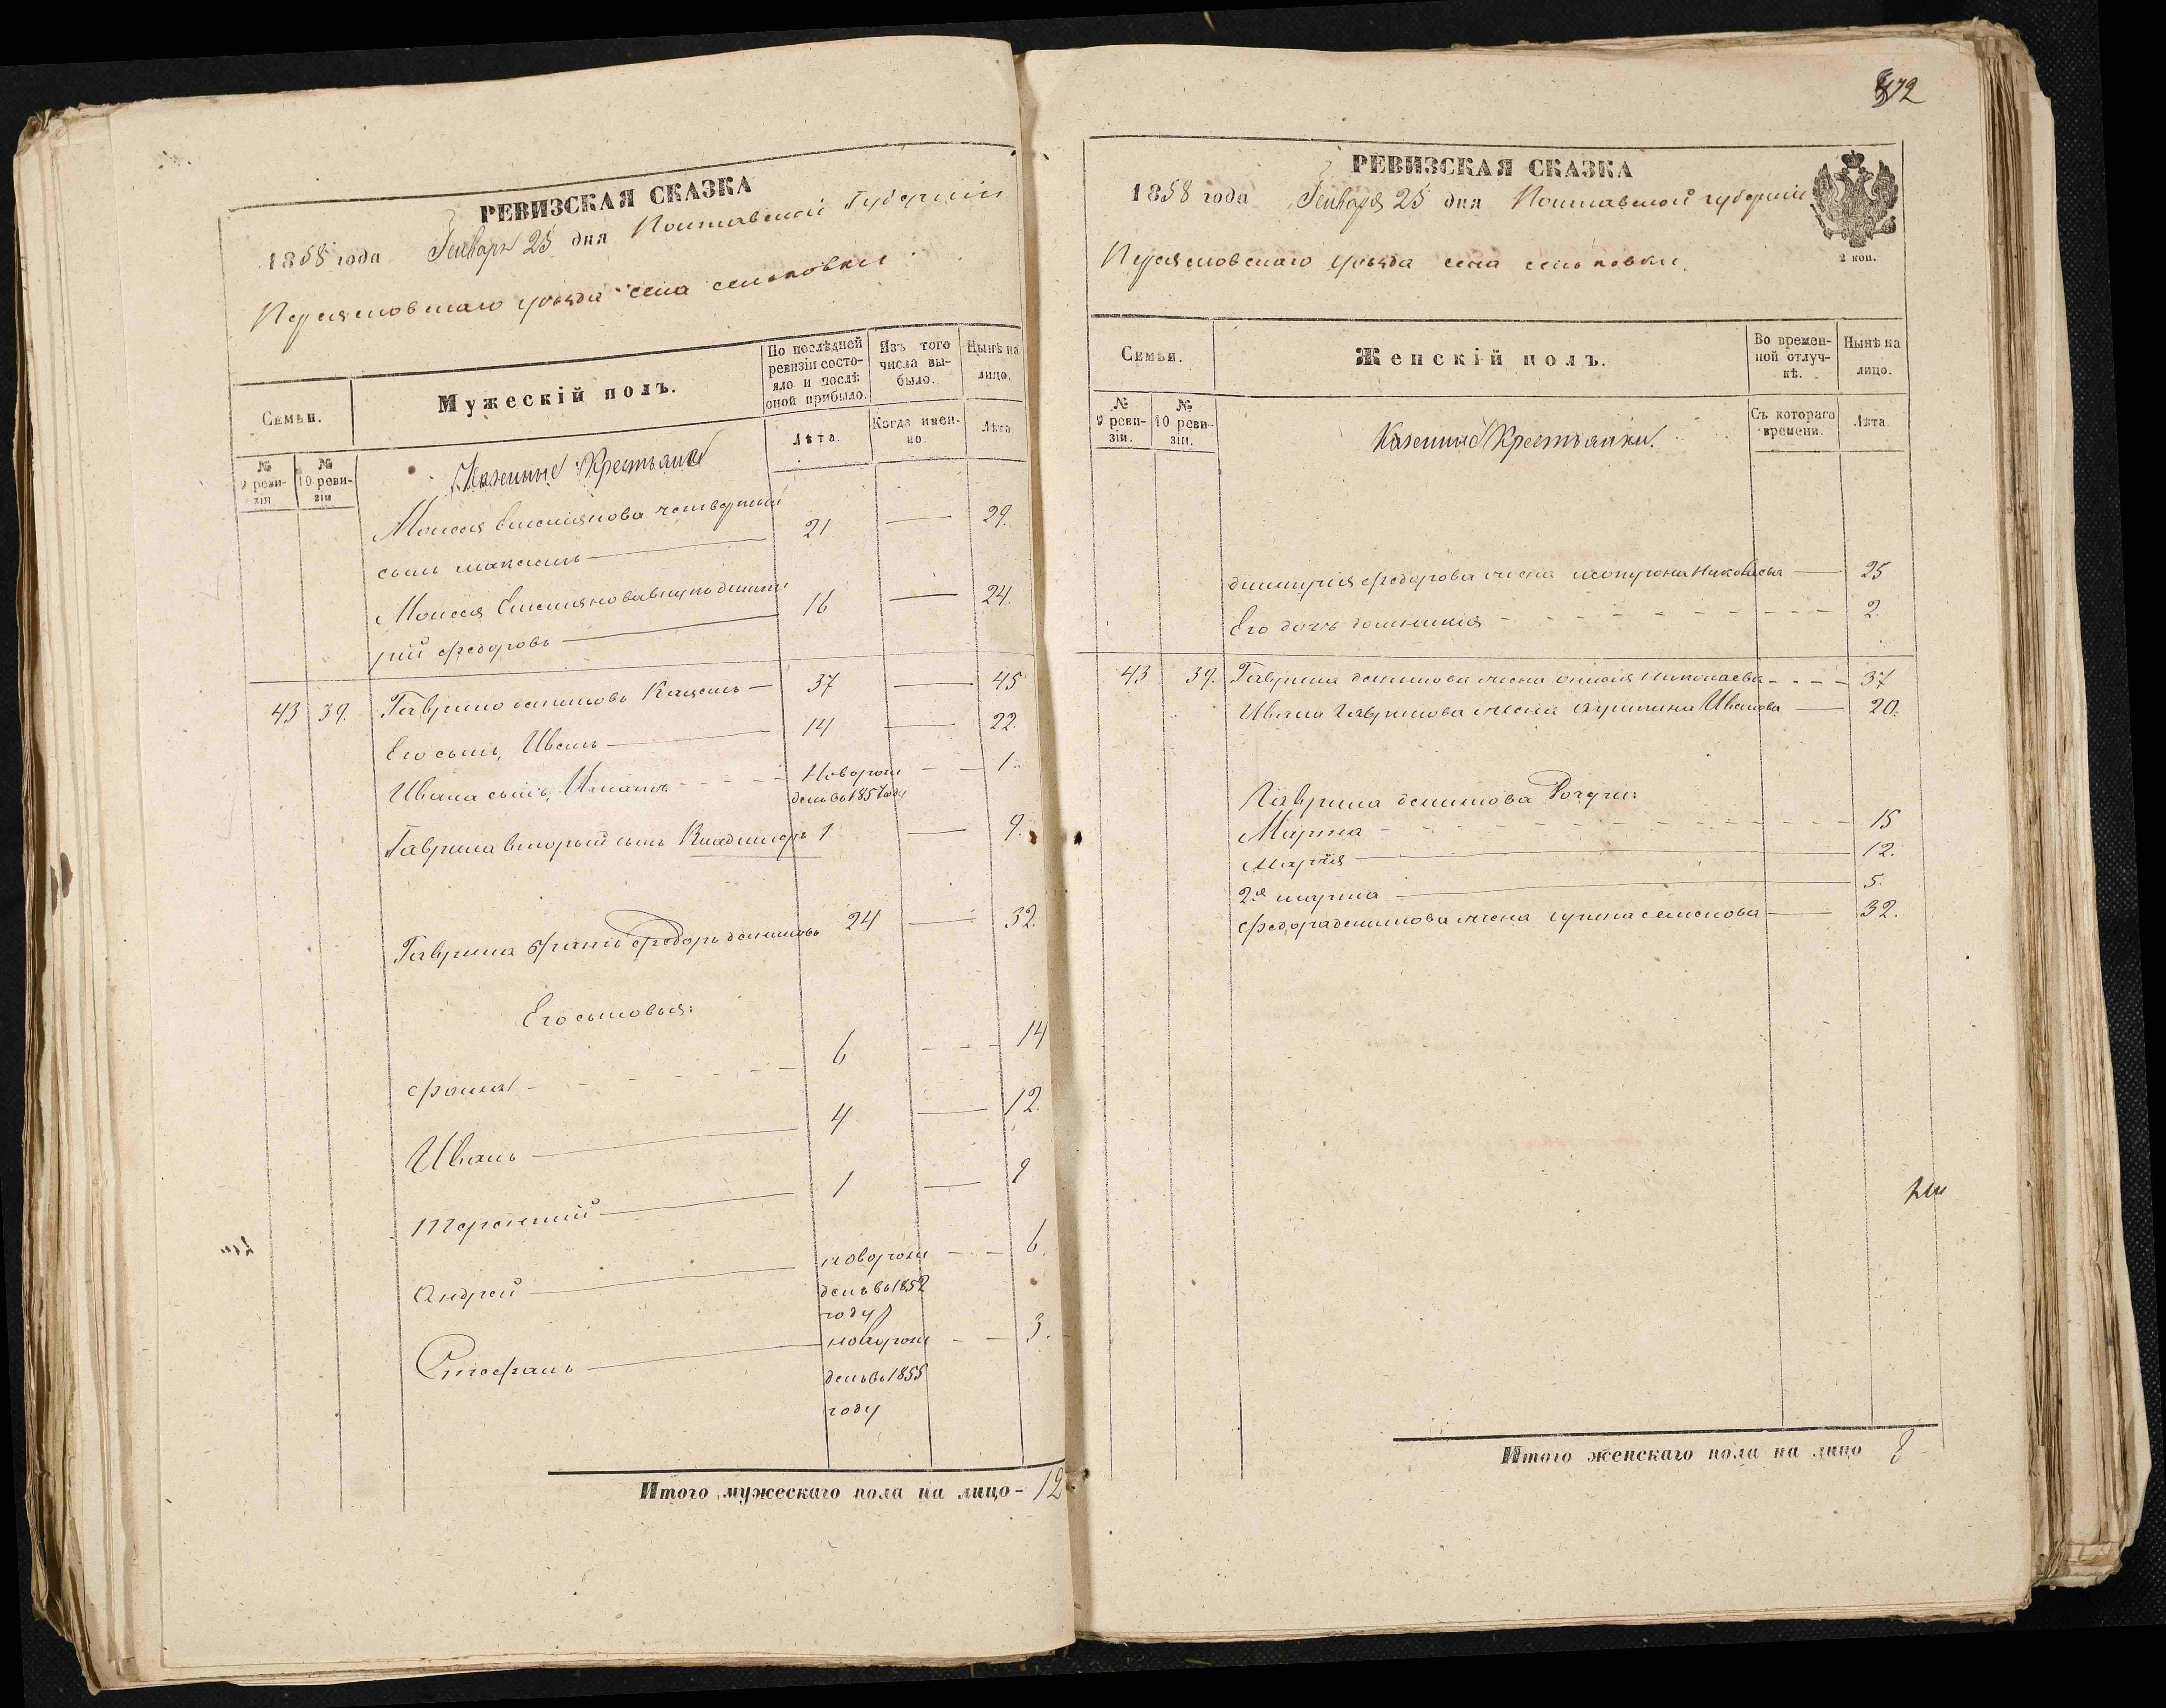 РЕВИЗСКАЯ СКАЗКА
1858 года Генваря 25 дня Полтавской Губерніи
Переясловскаго уѣзда села сеньковки
Семьи.
Мужескій полъ.
По послѣдней ревизіи состояло и послѣ оной прибыло.
Изъ того числа выбыло.
Нынѣ на лицо.
№ 9 ревизіи
№ 10 ревизіи
Лѣта.
Когда именно.
Лѣта
Казенные Крестьяне
Моисея Емелиянова четвертый
сынъ максимъ 21 29.
Моисея Емелиянова внукъ дмит
рій федоровъ 16 24.
43 39. Гаврило данилов 37 45
Его сынъ, Иванъ 14 22.
Ивана сынъ, Новорож 1.
денъ въ 1857 году
Гаврила вторый сынъ Владимеръ 1 9.
Гаврила братъ федоръ даниловъ 24 32.
Его сыновья:
фома 6 14
Иванъ 4 12.
Терентий 1 9
Андрей новорож 6.
денъ въ 1852
году
Стефанъ новорож 3.
денъ въ 1855
году
Итого мужескаго пола на лицо - 12
172
РЕВИЗСКАЯ СКАЗКА
1858 года Генваря 25 дня Полтавской губерніи
2 коп.
Переясловскаго уѣзда села сеньковки.
Семьи.
Женскій полъ.
Во временной отлучкѣ.
Нынѣ на лицо.
№ 9 ревизіи.
№ 10 ревизіи.
Съ котораго времени.
Лѣта.
Казенные Крестьянки.
димитрия федорова жена Николаева 25
Его дочь домникия 2.
43 39. Гаврила данилова жена Николаева 37
Ивана Гаврилова жена Иванова 20.
Гаврила данилова Дочери:
Марина 15
Мария 12.
2я марина 5.
федора данилова жена ирина семенова 32.
Итого женскаго пола на лицо 8